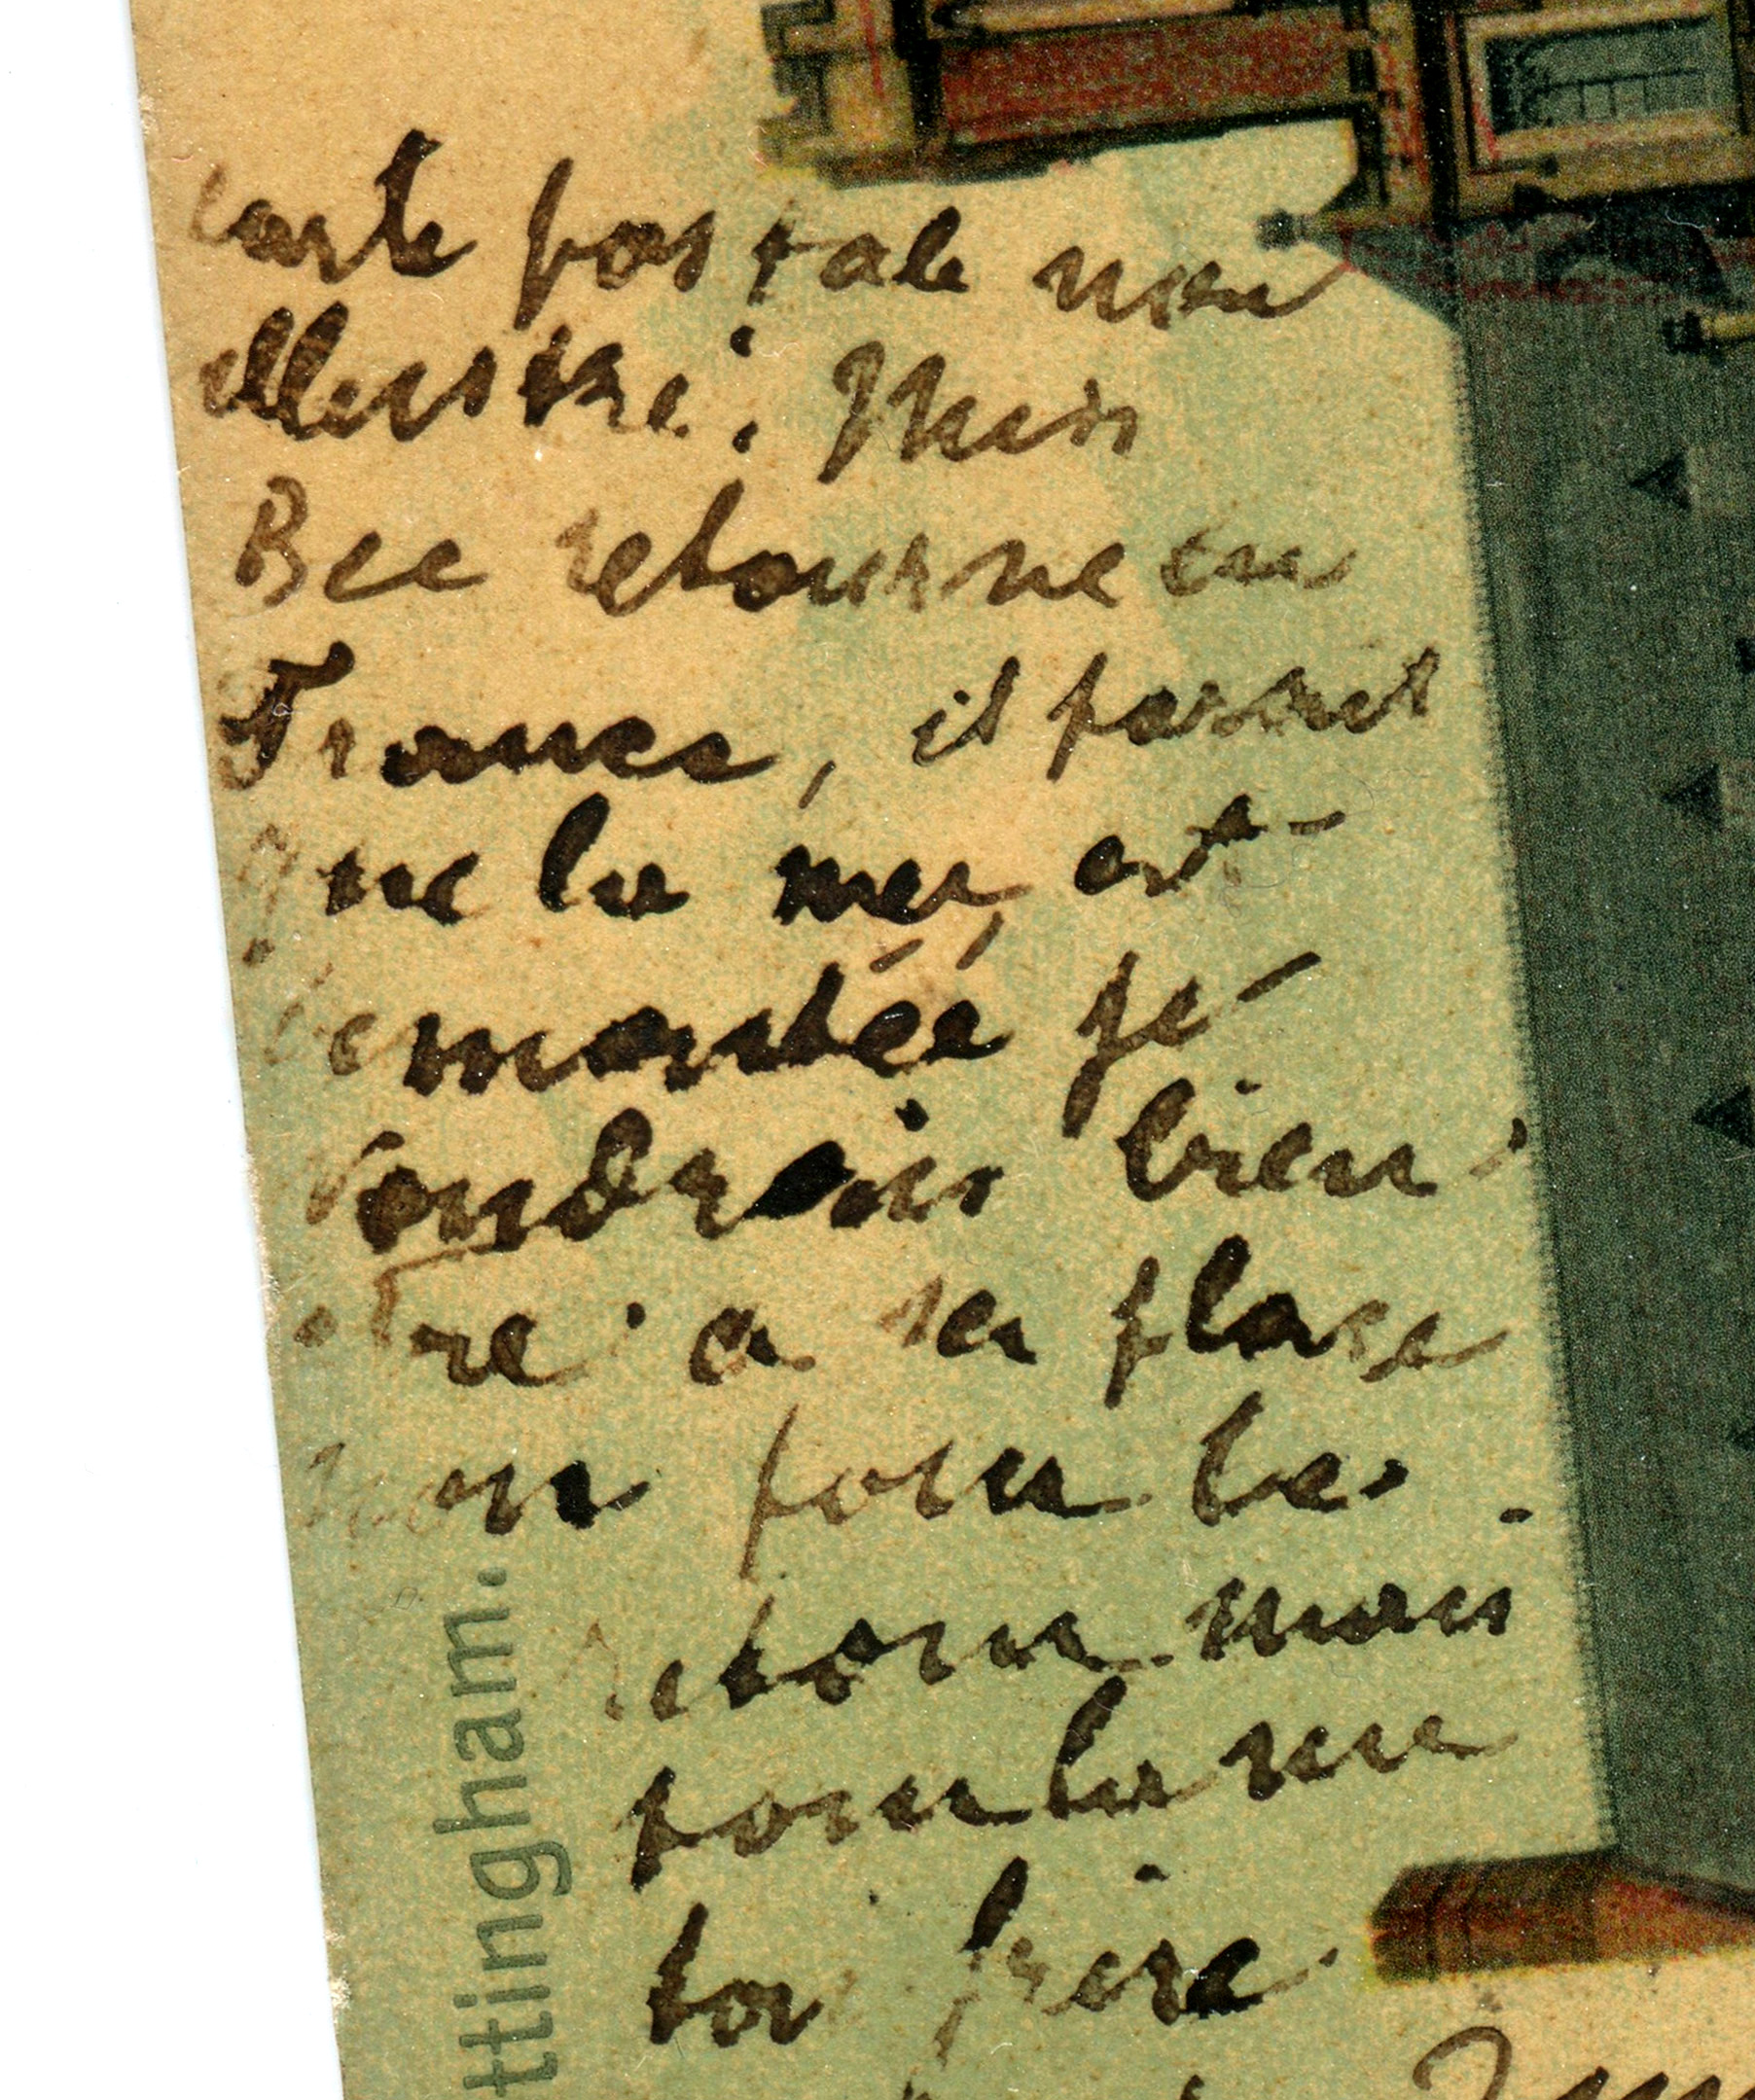 carte postale non
illustré. Miss
Bee retourne en
France, il parait
que la mer est
demontée je
voudrais bien
être a sa place
non pour le
retour mais
pour la mer
ton frère
ttingham.